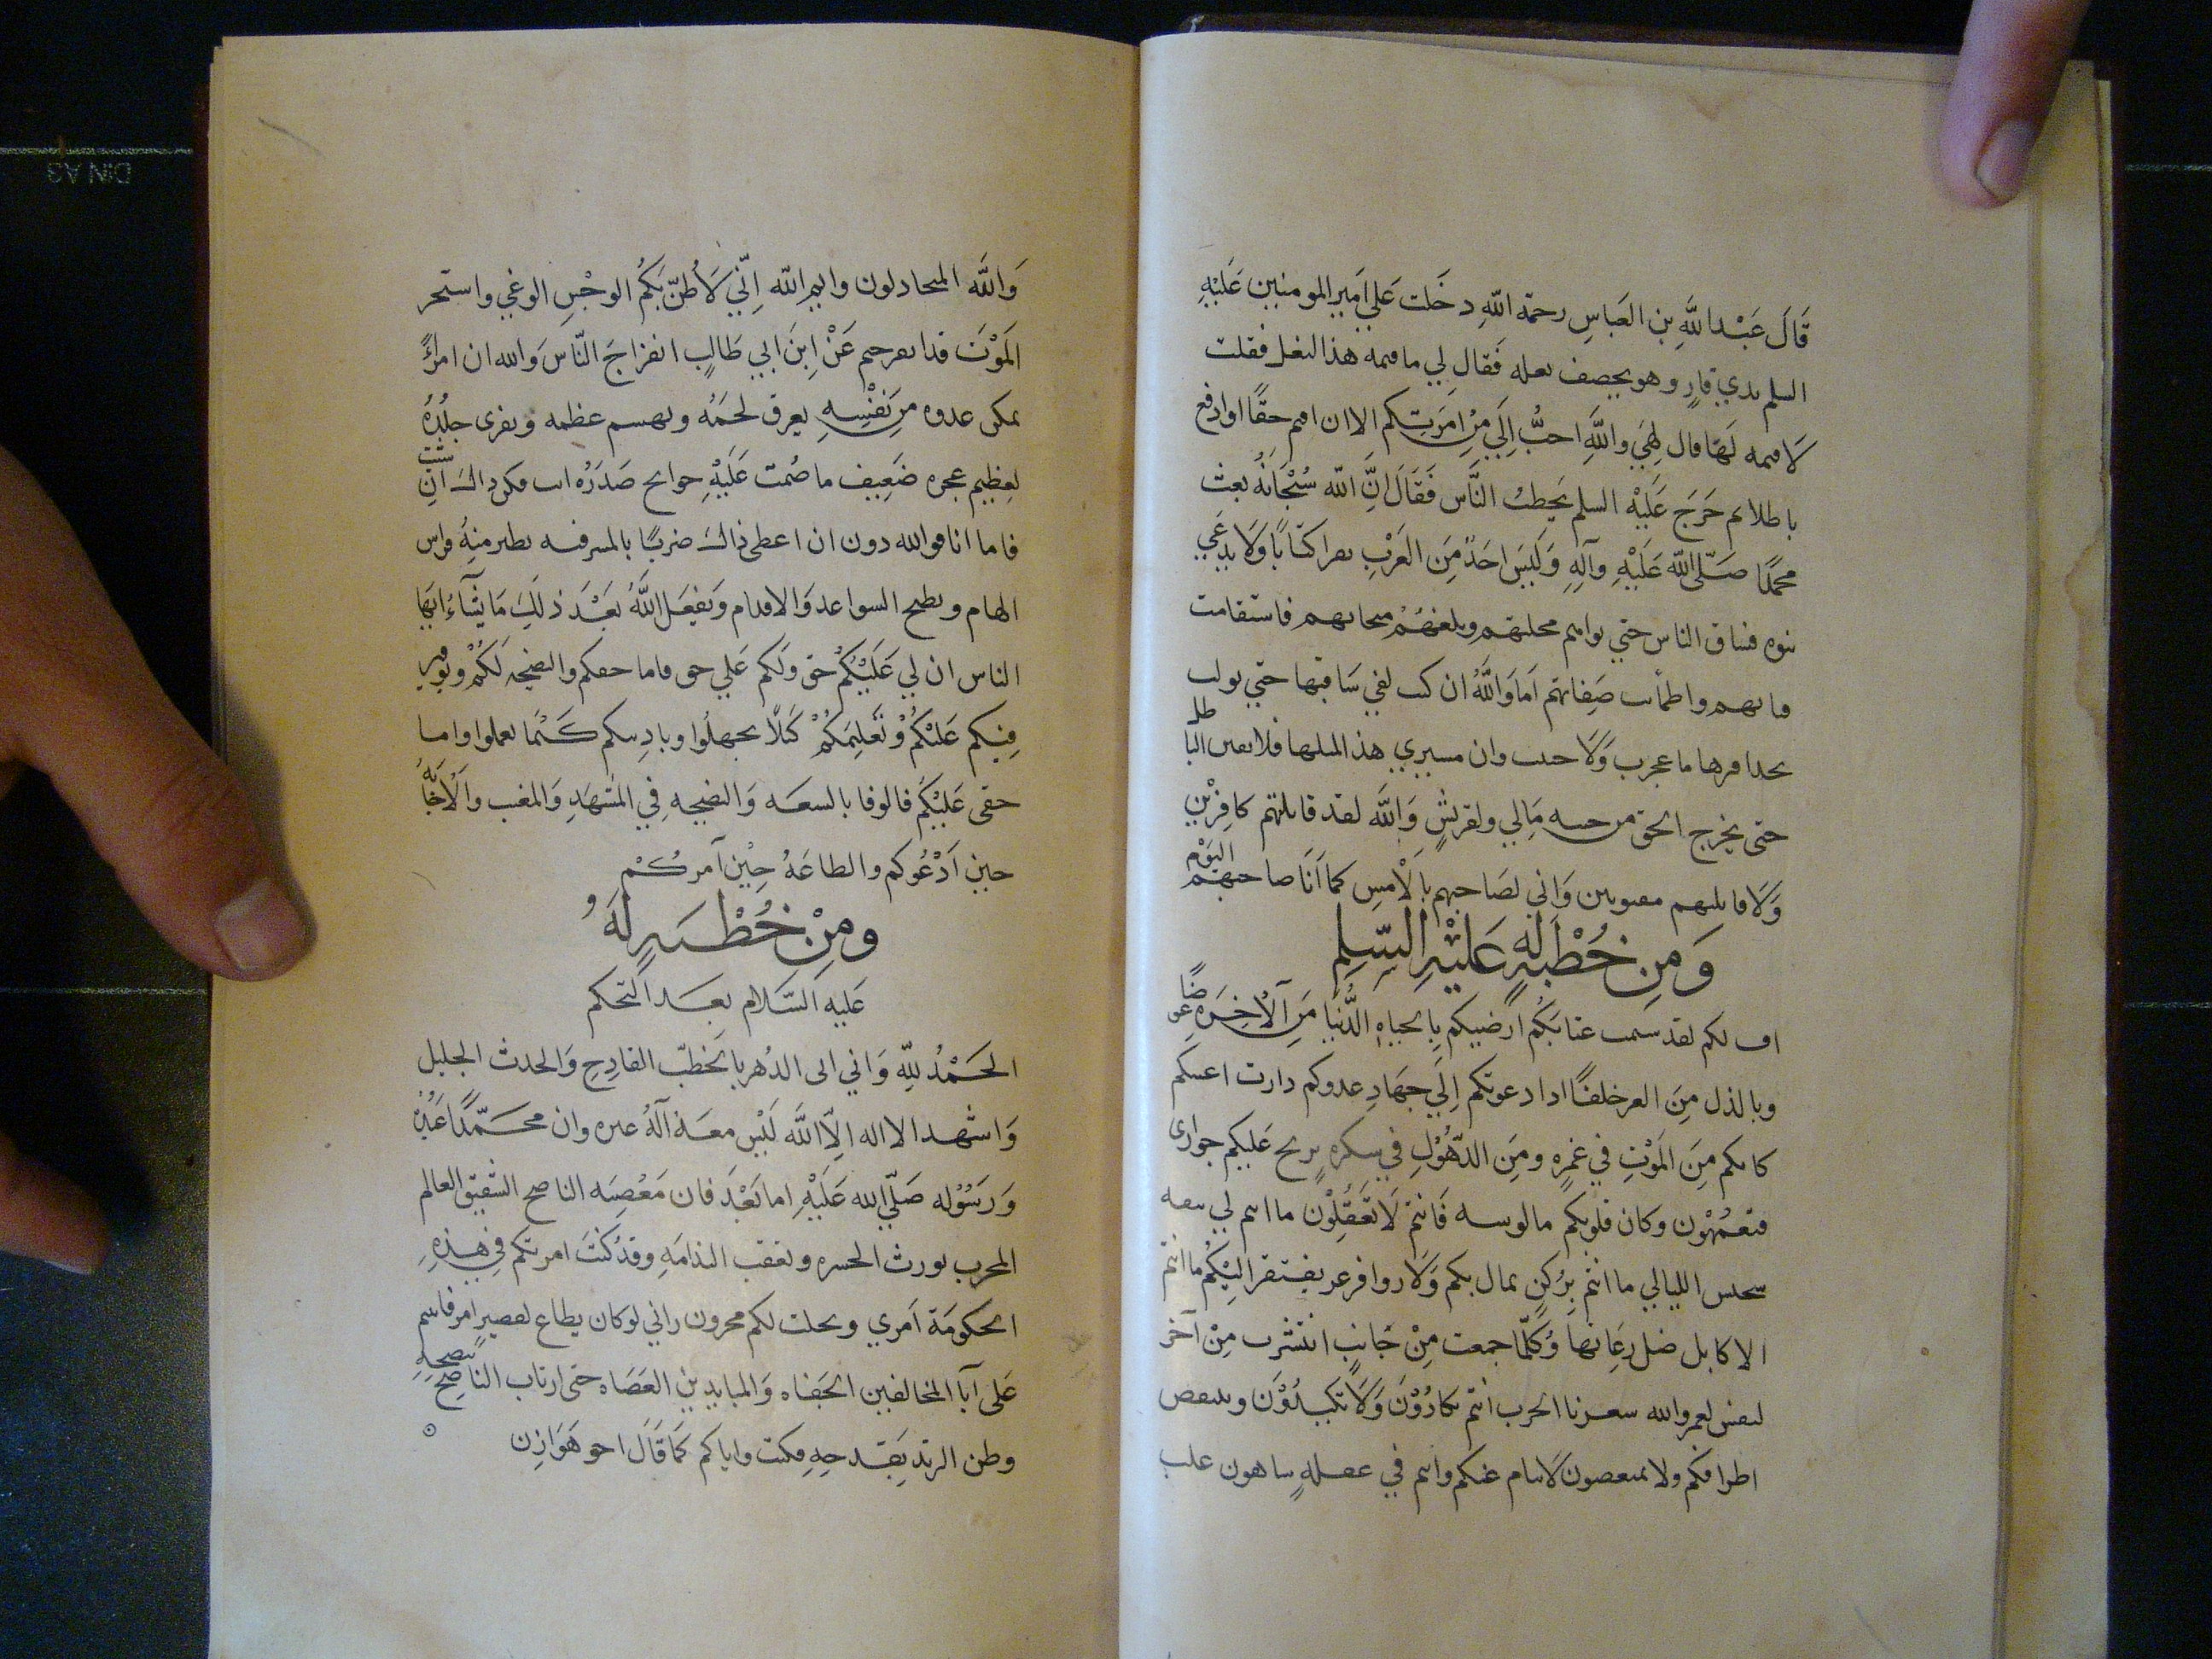 قَالَ عَبْدالله بن العَباسِ رحمَة اللهِ دخَلت عَلي أمير المومنين عَليْهِ
السلم بذي قارٍ وهو يخصف نعله فَقال لي ما قيمه هذا النعل فقلت
لا قيمه لَها قال لهِيَ واللَّهِ احبُّ اِلَي مِنْ اِمَرتِكم الا ان اقيم حقًا او ادفع
باطلا ثم خَرَجَ عَليْه السلم يَخطبُ النَّاس فَقَالَ اِنَّ الله سُبْحَانَهُ بعث
محمدًا صَلّى الله عَلَيْهِ وآلِهِ وَلَيسَ احَدٌ مِنَ العَرَبِ يقرا كتابًا وَلَا يدعي
نبوه فساق الناس حتي بواهم محلتهم وبلغهُمْ منجاتهم فاستقامت
قناتهم واطمأنت صَفاتهم اَما وَاللَّهُ ان كنت لفي سَاقتها حتي تولت
بحذافيرها ما عجزت وَلَا جبنت وان مسيري هذا لمثلها فلانقبن الباطل
حتى يخرج الحق من جنبه مَالِي ولقريشٍ وَاللَّه لقد قاتلتهم كافِرْين
وَلَا قاتلنهم مفتونين وَاني لصَاحبهم بِالْامسِ كما اَنَا صاحبهم اليَوْم
وَمِن خُطْبَةٍ لَه عَليْهِ السِّلم
اف لكم لقد سئمت عتابَكُم ارضيتم بِالحياهِ الدُّنيَا مِنَ الْاخِرَهِ عوضًا
وبالذل مِنَ العز خلفًا اذا دعوتكم اِلَي جهَادِ عدوكم دارت اعينكم
كانكم مِنَ المَوْتِ في غمرٍه ومِنَ الذّهُوْلِ في سكره يرتج عَليكم حواري
فتعمهُوْن وكان قلوبكم مالوسه فَانتم لَا تعَقِلُوْن ما انتم لي بثقه
سجيس الليالي ما انتم بِرُكنٍ يمال بكم وَلَا زوافر عز يفتقر اليْكُم ما انتم
الا كابل ضل رعَاتها وُكلّما جمعت مِنْ جَانبٍ انتشرت مِنْ آخر
لبئس لعمر والله سعر نار الحرب انتم تكادُوْنَ وَلَا تكيدُوْن وتنتقص
اطرافكم ولا تمتعضون لا ينام عنكم وانتم في غفلهٍ ساهون غلب
وَاللَّه المتخاذلون وايم الله اِنّي لَأظنّ بكُم ان لو حْمِس الوغي واستحر
المَوْتَ قد انفرجتم عَنْ اِبنَ ابي طَالبٍ انفراجَ النّاسَ والله ان امرأً
يمكن عدوه مِن نَفْسِهِ يعرق لحمَهُ ويهشم عظمه ويفرى جلِدُهُ
لعِظيم عجزه ضَعِيف ما ضُمت عَليْهِ جوانح صَدَرُه انت فكن ذاك اَن شئت
فاما انا فوالله دون ان اعطى ذاك ضربًا بالمشرفيه تطير منِهُ فراش
الهام وتطيح السواعد وَالاقدام وَيفعَل اللَّهُ بَعْدَ ذلِكَ مَا يشَآءُ ايّها
الناس ان لي عَلَيْكُمْ حق ولَكم عَلي حق فاما حقكم والنصيحه لَكُمْ وتوفير
فيئكم عَليْكُمْ وتَعَليمَكُمْ كَيلَا تجهلُوا وتاديبكم كَيْما تعملوا واما
حقى عَليْكُم فالوفا بالسعَه وَالنصيحه فِي المَشهَدِ وَالمغيب وَالْاجَابَهُ
حين اَدْعُوكم والطاعَهُ حِيْن آمركُم
ومِنْ خُطْبَهٍ لَهُ
عَليهِ السَّلام بعَد التحكم
الحَمْدُ لِلّهِ وَانِي اتى الدُهر بالخَطبّ الفادِحِ وَالحدث الجليل
وَاشهد الا اله اِلّا اللَّه لَيْس معَهُ آلهُ غيره وان محَمَّدًا عَبْدُهُ
وَرَسُوْله صَلّي الله عَلَيْهِ اما بَعْدَ فان مَعْصِيَه الناصح الشفيق العالم
المجرب تورث الحسره وتعقب الندامَهِ وقدْ كنْتَ امرتكم فيْ هذهِ
الحكومَة اَمري ونخلت لكم مخزون راني لو كان يطاع لقصيرٍ امر فابيتم
عَلى ابا المخالفين الجَفاه وَالمنابذين العَصَاه حتى ارتاب الناصِحُ بنصحهِ
وظن الزند بِقَدحِهِ فكنت واياكم كمَا قَالَ اخو هَوَازِن